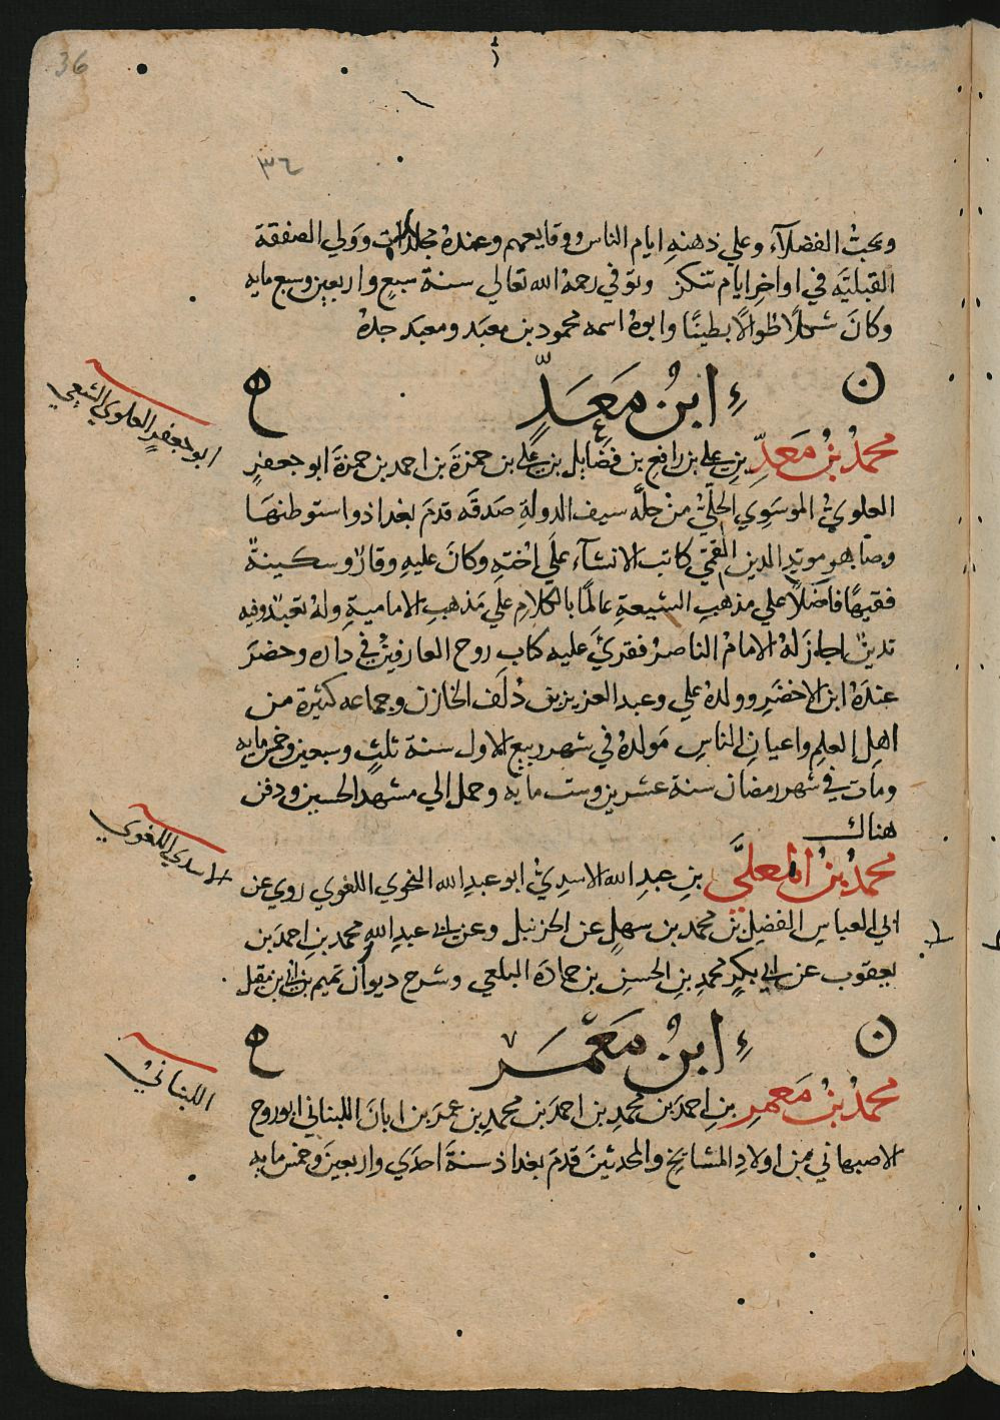 36
٣٦
وبحث الفضلآء وعلي ذهنه ايام الناس ووقايعهم وعنده مجلدات وولي الصفقة
القبليّه في اواخر ايام تنكز وتوفي رحمه الله تعالي سنة سبع واربعين وسبع مايه
وكان شكلاً طوالاً بطينًا وابوه اسمه محمود بن معبد ومعبد جده
ن ابنُ مَعَدٍّ ح
ابو جعفر العلوي الشيعي
محمدُ بنُ مَعَدِّ بنِ علي بن رافع بن فضايل بن علي بن حمزة بن احمد بن حمزة ابو جعفر
العلويّ الموسَوي الحِلّيّ من حلّة سيف الدولة صَدقَه قدمَ بغداذ واستوطنهَا
وصَاهر مويد الدين القمّيّ كاتب الانشآء علَي اخته وكانَ عليه وقارٌ وسكينةٌ
فقيهًا فاضلاً علي مذهب الشيعةِ عالمًا بالكلام علَي مَذهبِ الاماميةِ وله تعبدٌ وفيه
تدينٌ اجاز لهُ الامامُ الناصرُ فقرئَ عليه كتاب روح العارفين في داره وحضرَ
عندَهُ ابن الاخضر وولدهُ علي وعبد العزيز بن دُلَف الخازن وجماعه كثيرة من
اهلِ العلمِ واعيانِ الناسِ مَولدهُ في شهر ربيع الاول سنة ثلثٍ وسبعين وخمس مايه
ومات في شهر رمضان سنة عشرين وست مايه وحمل الي مشهد الحسين ودفن
هناك
الاسدي اللغوي
محمدُ بنُ المعلَّى بنِ عبدِ الله الاسديّ ابو عبد الله النحوي اللغوي روي عن
ابي العباس الفضيل بن محمد بن سهل عن الحزنبل وعن ابي عبد الله محمد بن احمد بن
يعقوب عن ابي بكرٍ محمدِ بنِ الحسنِ بن حمادَه البلعي وشرح ديوان تميم بن ابي بن مقبل
ن ابنُ مَعْمَر ح
اللبناني
محمدُ بنُ مَعمرِ بنِ احمدَ بن محمدِ بن احمدَ بن محمدِ بن عمرَ بن ابانَ اللبناني ابو روح
الاصبهاني من اولادِ المشايخ والمحدثينَ قدمَ بغداذ سنةَ احدَي واربعينَ وخمس مايه